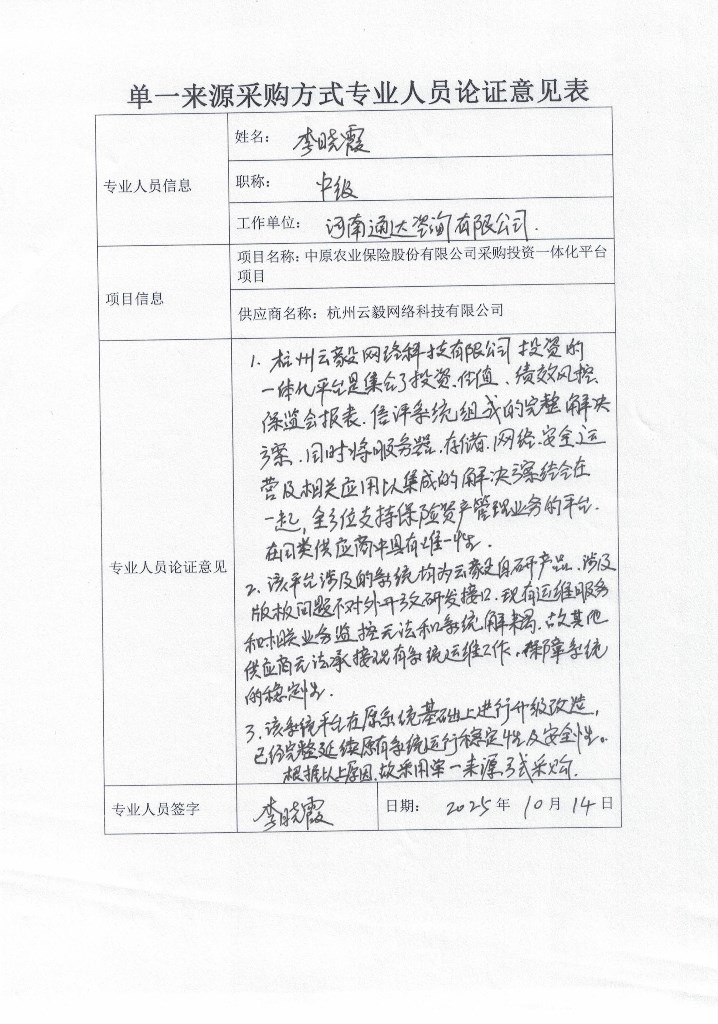 单一来源采购方式专业人员论证意见表
专业人员信息
姓名： 李晓霞
职称： 中级
工作单位： 河南通达咨询有限公司.
项目信息
项目名称：中原农业保险股份有限公司采购投资一体化平台
项目
供应商名称：杭州云毅网络科技有限公司
专业人员论证意见
1. 杭州云毅网络科技有限公司投资的
一体化平台是集合了投资、估值、绩效风控、
保监会报表、信评系统组成的完整解决
方案、同时将服务器、存储、网络、安全、运
营及相关应用以集成的解决方案结合在
一起，全方位支持保险资产管理业务的平台.
在同类供应商中具有唯一性.
2. 该平台涉及的系统均为云毅自研产品、涉及
版权问题不对外开放研发接口、现有运维服务
和相关业务监控无法和系统解耦、故其他
供应商无法承接现有系统运维工作，保障系统
的稳定性.
3. 该系统平台在原系统基础上进行升级改造，
已经完整延续原有系统运行稳定性及安全性。
根据以上原因、故采用单一来源方式采购.
专业人员签字 李晓霞 日期： 2025年 10月 14日